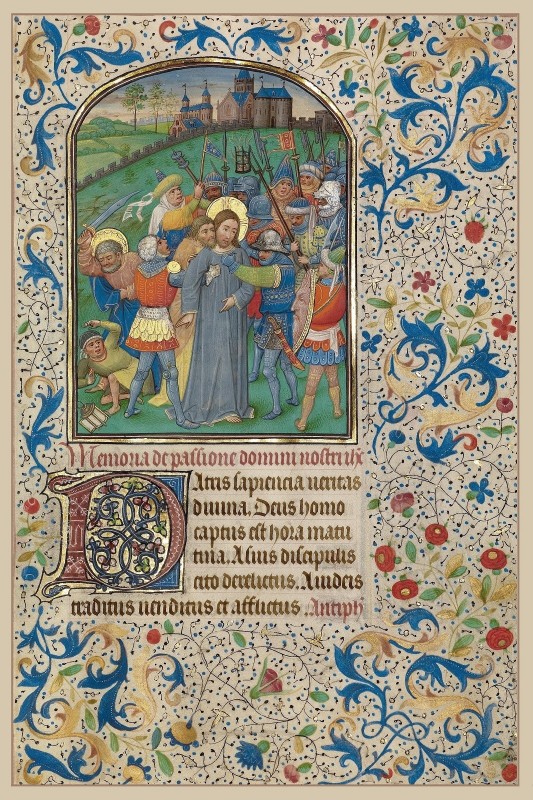 Memoria de passione domini nostri ihx
Patris sapiencia ueritas
diuina. Deus homo
captus est hora matu
tina. A suis discipulis
cito derelictus. A iudeis
traditus uenditus et afflictus Antiph